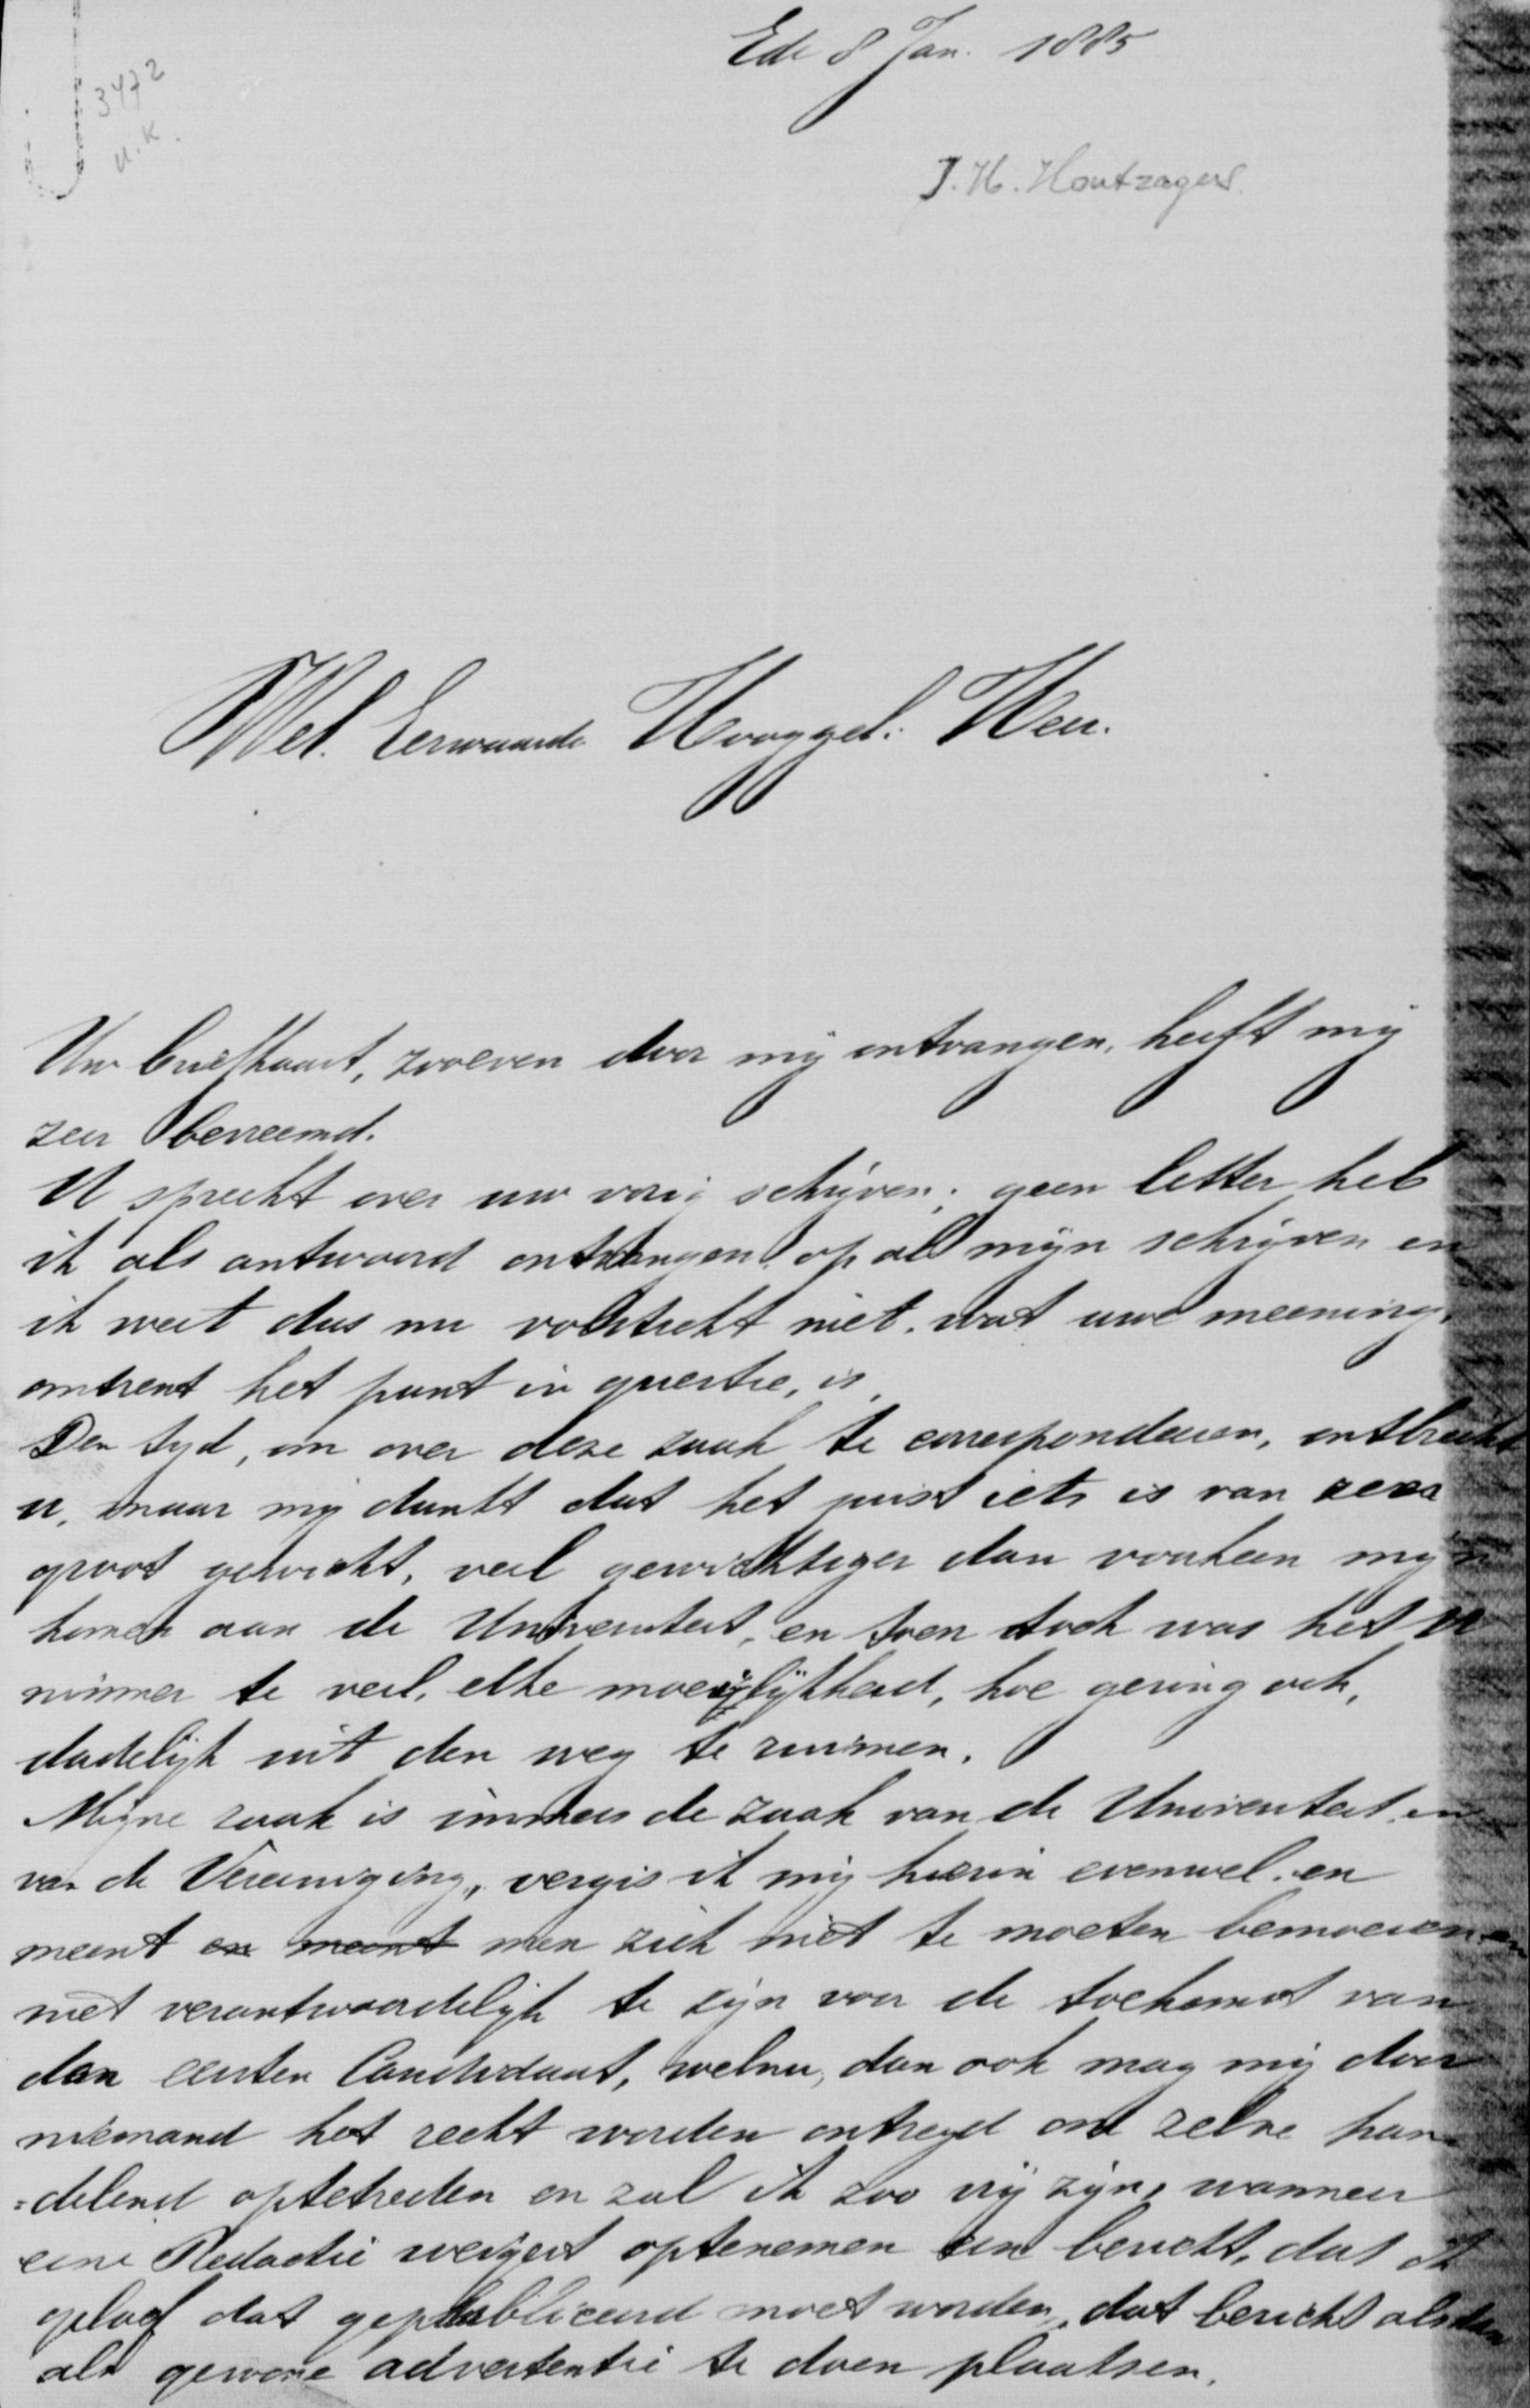 3472
U.K.
Ede 8 Jan. 1885
J.H. Houtzagers.
Wel. Eerwaarde Hooggel. Heer.
Uw briefkaart, zooeven door mij ontvangen, heeft mij
zeer bevreemd.
U spreekt over uw vorig schrijven; geen letter heb
ik als antwoord ontvangen op al mijn schrijven en
ik weet dus nu volstrekt niet, wat uwe meening,
omtrent het punt in questie, is.
Den tijd, om over deze zaak te correspondeeren, ontbreekt
u, maar mij dunkt dat het juist iets is van zeer
groot gewicht, veel gewichtiger dan voorheen mijn
komen aan de Universiteit, en toen toch was het U
nimmer te veel, elke moeijlijkheid, hoe gering ook,
dadelijk uit den weg te ruimen.
Mijne zaak is immers de zaak van de Universiteit en
van de Vereeniging, vergis ik mij hierin evenwel en
meent en meent men zich niet te moeten bemoeien en
niet verantwoordelijk te zijn voor de toekomst van
den eersten Candidaat, welnu, dan ook mag mij door
niemand het recht worden ontzegd om zelve han-
=delend optetreden en zal ik zoo vrij zijn, wanneer
eene Redactie weigert optenemen een bericht, dat ik
geloof dat gepubliceerd moet worden, dat bericht alsdan
als gewone advertentie te doen plaatsen.